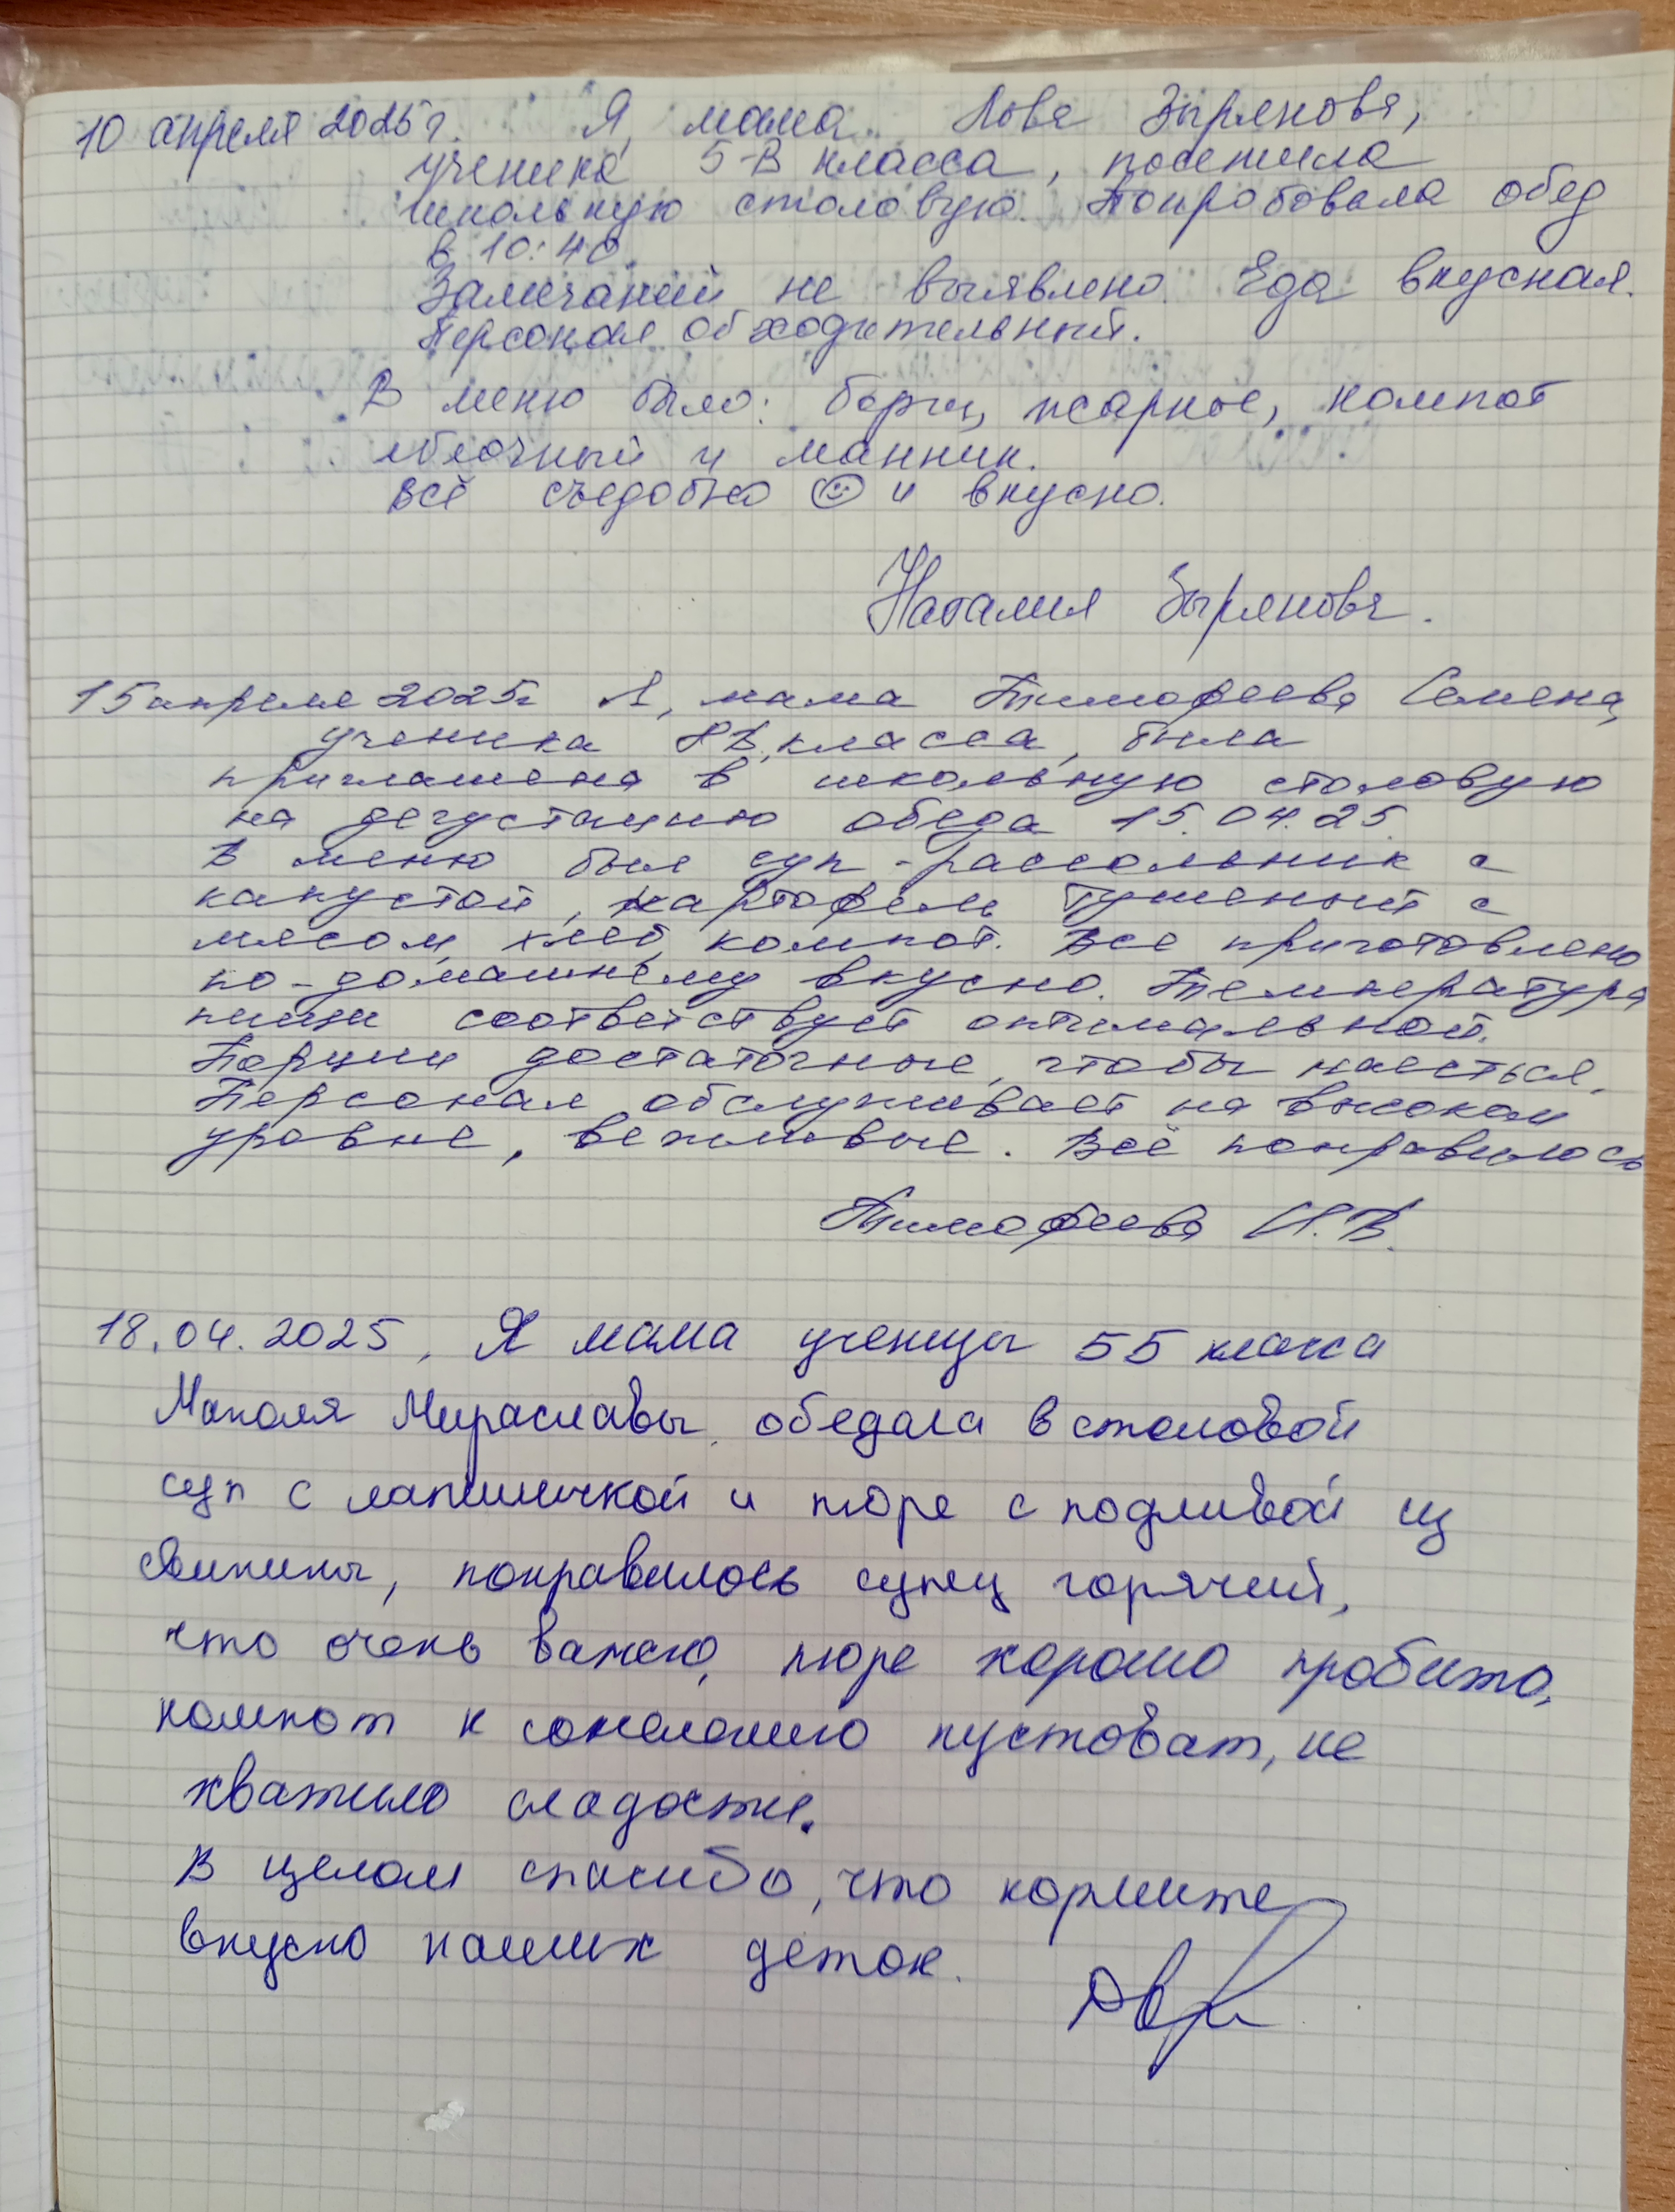 10 апреля 2025 г. Я, мама Льва Зырянова,
ученика 5-В класса, посетила
школьную столовую. Попробовала обед
в 10:40.
Замечаний не выявлено. Еда вкусная.
Персонал обходительный.
В меню было: борщ, жаркое, компот
яблочный и манник.
Всё съедобно ☺ и вкусно.
Наталия Зырянова.
15 апреля 2025г Я, мама Тимофеева Семена,
ученика 8В класса, была
приглашена в школьную столовую
на дегустацию обеда 15.04.25.
В меню был суп-рассольник с
капустой, картофель тушеный с
мясом, хлеб, компот. Все приготовлено
по-домашнему вкусно. Температура
пищи соответствует оптимальной.
Порции достаточные, чтобы наесться.
Персонал обслуживает на высоком
уровне, вежливые. Всё понравилось
Тимофеева И.В.
18.04.2025, Я мама ученицы 5Б класса
Мирославы, обедала в столовой
суп с лапшичкой и пюре с подливой из
свинины, понравилось супец горячий,
что очень важно, пюре хорошо пробито,
компот к сожалению пустоват, не
хватило сладости.
В целом спасибо, что кормите
вкусно наших деток.